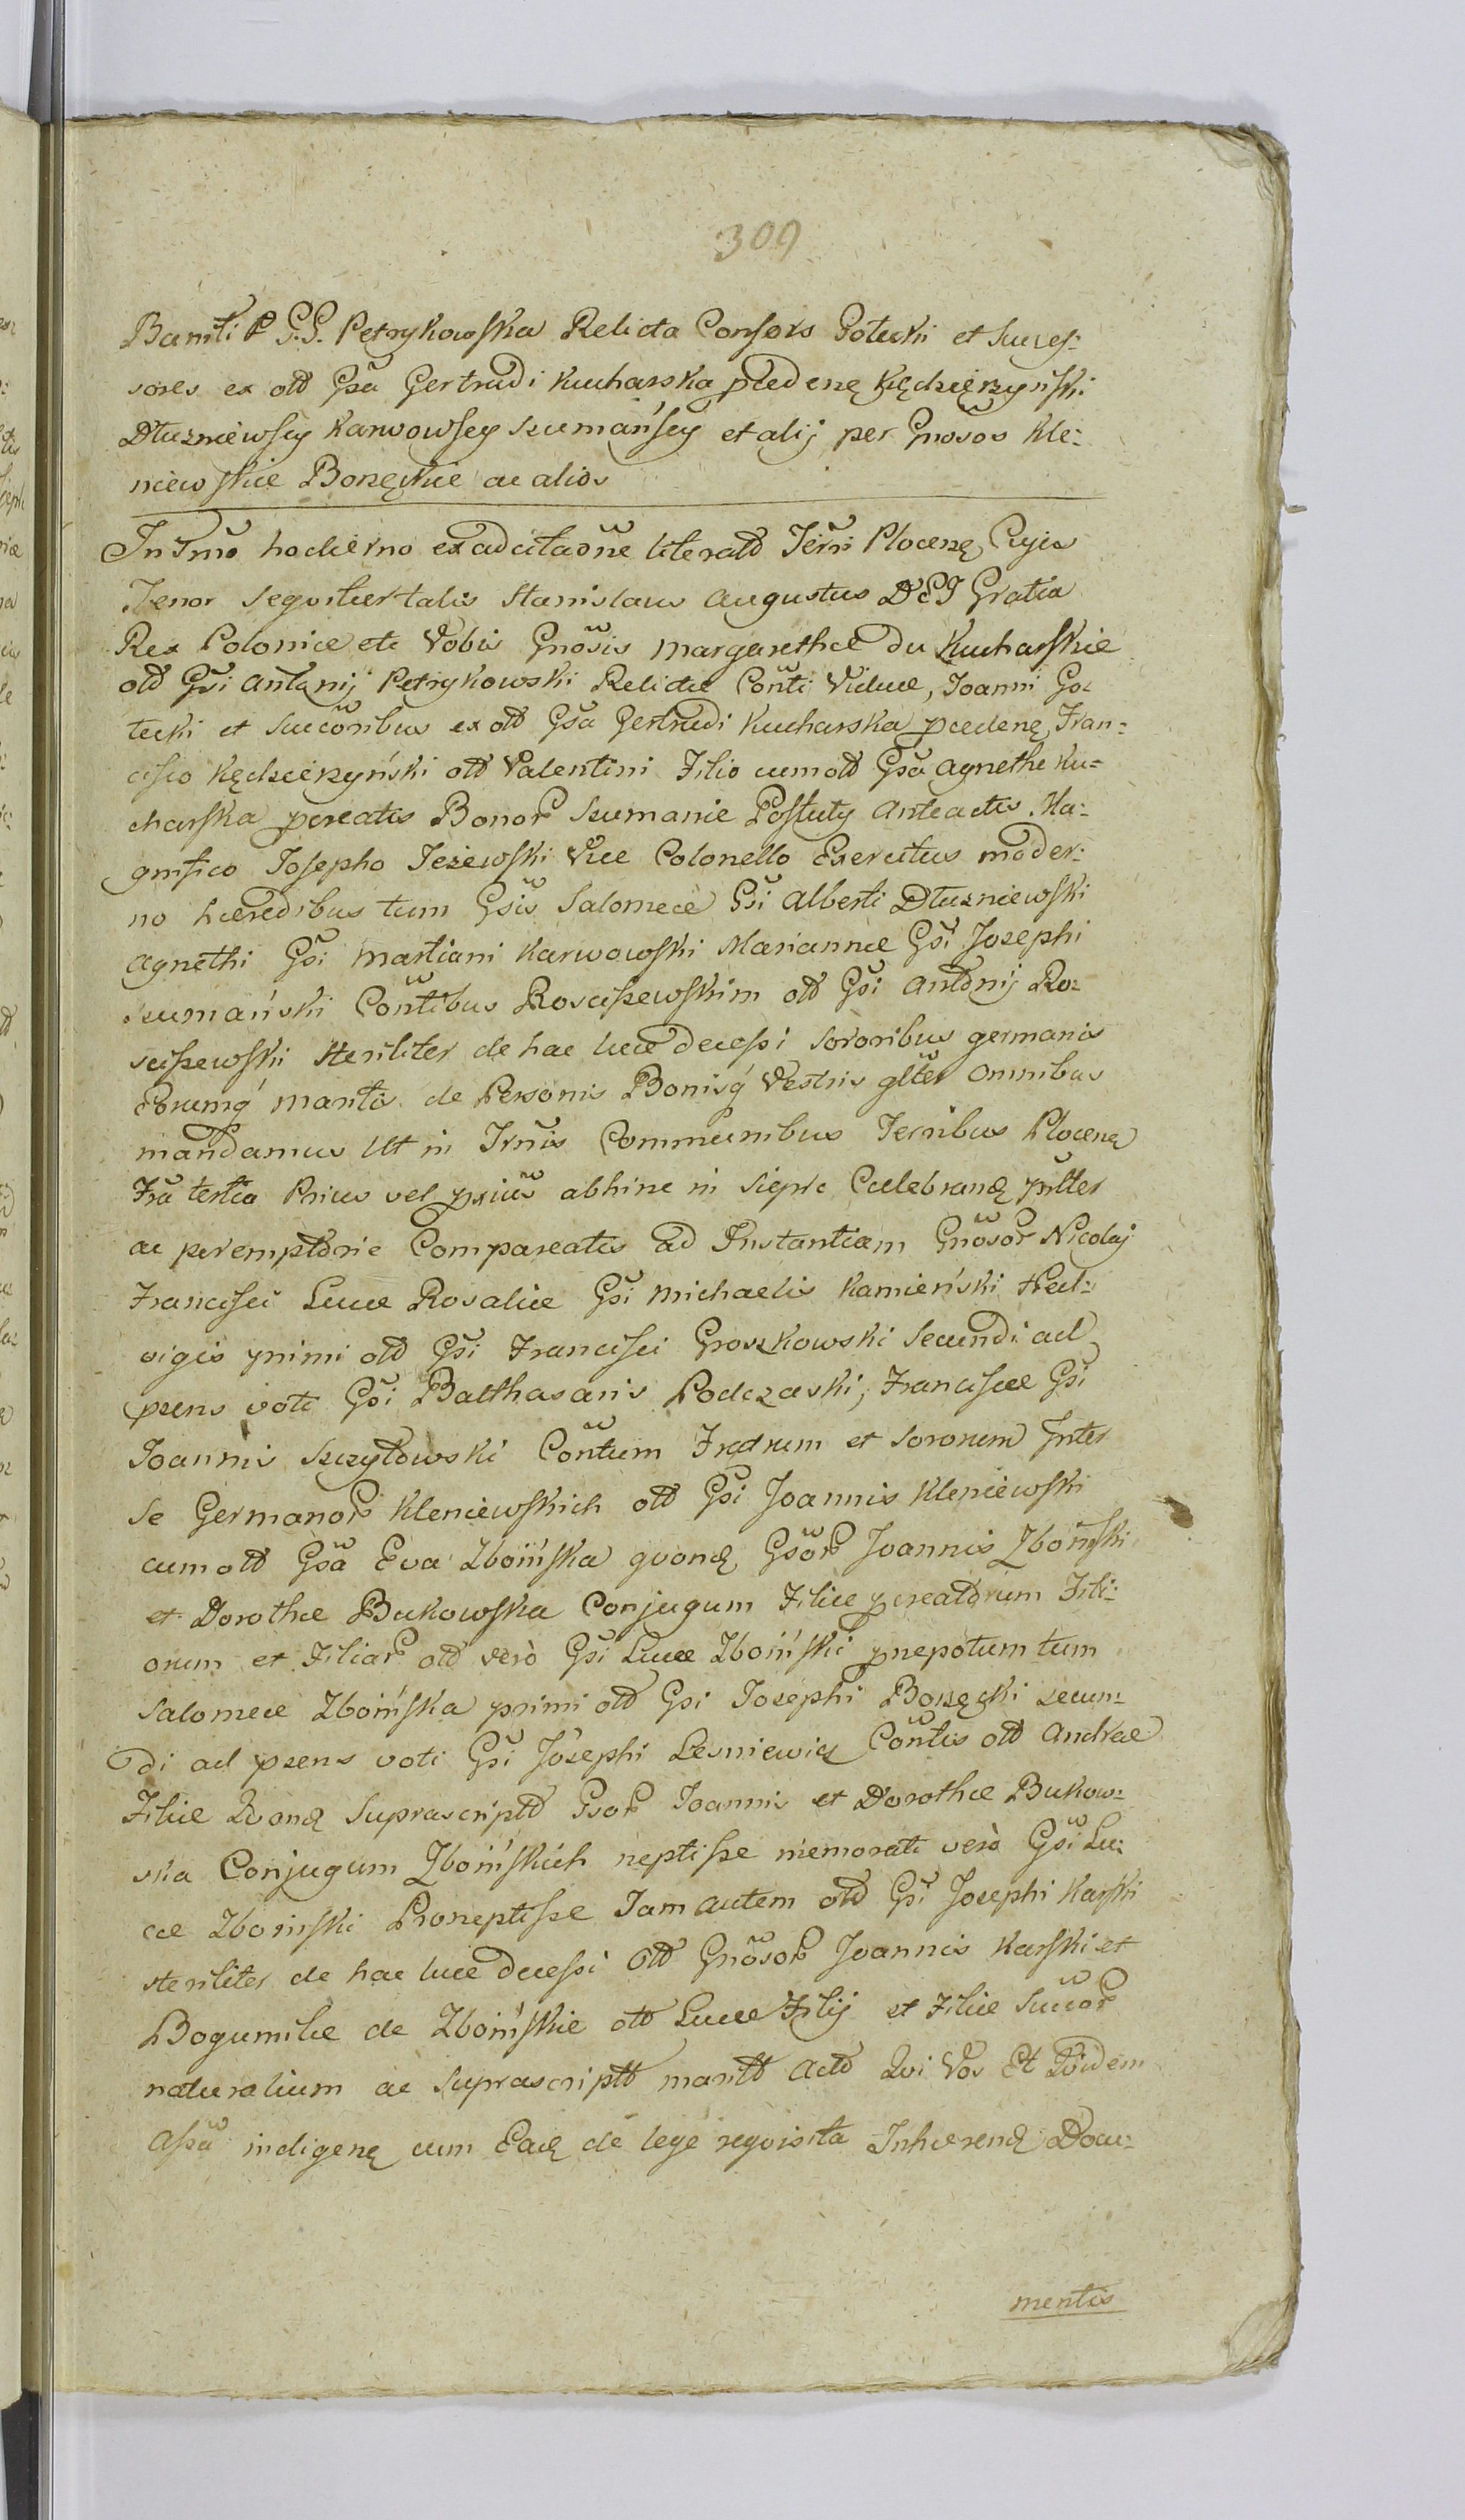 309
Banīti P G.G. Petrykowska Relicta Consors Gotecki et Succes:
sores ex oltt Gsa Gertrudi Kucharska pcedenę Kędzierzyński
Dłuzniewscy Karwowscy Szumańscy et alij per Gnosos Kle:
niewskie Borzęckie ac alios
In Tmō hodierno ex adcitaōne literatt Terri Plocenę Cujus
Tenor Seqvitur talis Stanislaus Augustus DEI Gratia
Rex Poloniæ etc Vobis Gnosis Margarethæ de Kucharskie
oltt Gsi Antonij Petrykowski Relictæ Conti Viduæ, Joanni Go:
tecki et Succoribus ex oltt Gsa Gertrudi Kucharska pcedenę, Fran:
cisco Kędzierzyński oltt Valentini Filio cum oltt Gsa Agnethe Ku=
charska pcreatis Bonor Szumanie Posluty Anteactis Ma:
gnifico Josepho Jezewski Vice Colonello Exercitus moder:
no hæredibus tum Gsis Salomeæ Gsi Alberti Dłuzniewski
Agnethi Gsi Martiani Karwowski Mariannæ Gsi Josephi
Szumański Contibus Rosciszewskim oltt Gsi Antonij Ro:
sciszewski Steriliter de hac luce decessi Sororibus germanis
Eorumq́ maritis de Personis Bonisq́ Vestris glter Omnibus
mandamus Ut in Trmis Communibus Terribus Plocenę
Fria tertia Prius vel pxius abhinc in Sierpc Celebrandę psltter
ac peremptorie Compareatis Ad Instantiam Gnosor Nicolaj
Francisci Lucæ Rosaliæ Gsi Michaelis Kamieński Hed:
vigis primi oltt Gsi Francisci Groszkowski Secundi ad
psens voti Gsi Balthasaris Podczaski, Franciscæ Gsi
Joannis Szczytowski Contum Fratrum et Sororum Inter
Se Germanor Kleniewskich oltt Gsi Joannis Kleniewski
cum oltt Gsa Eva Zboińska qvondę Gsor Joannis Zboinski
et Dorothæ Bukowska Conjugum Filiæ pcreatorum Fili:
orum et Filiar oltt verò Gsi Lucæ Zboiński pnepotum tum
Salomeæ Zboińska primi oltt Gsi Josephi Borzęcki secun:
di ad psens voti Gsi Josephi Lesniewicz Contis oltt Andreæ
Filiæ Qvondę Suprascriptt Gsor Joannis et Dorothæ Bukow:
ska Conjugum Zboińskich neptisse memorati verò Gsi Lu:
cæ Zboinski Proneptisse Jam autem oltt Gsi Josephi Karski
steriliter de hac luce decessi Oltt Gnosor Joannis Karski et
Bogumilæ de Zboińskie oltt Lucæ Filij et Filiæ Succor
naturalium ac Suprascriptt maritt Actt Qvi Vos Et Qvidem
Assa indigenę cum Eadę de lege reqvisita Inhærendę Docu:
mentis